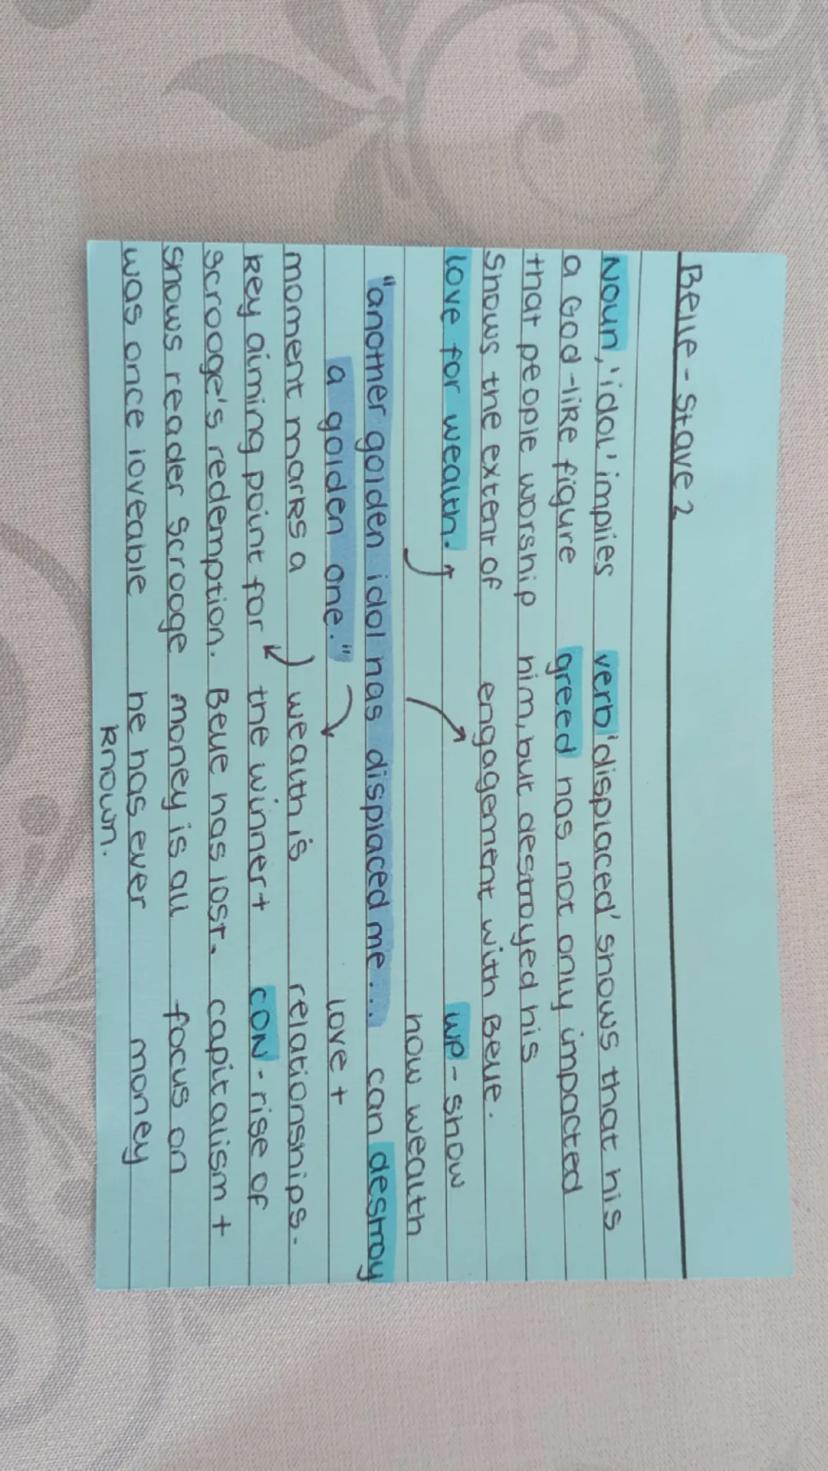 Belle - Stave 2
Noun, 'idol' implies verb 'displaced' shows that his
a God-like figure greed has not only impacted
that people worship him, but destroyed his
Shows the extent of engagement with Belle.
love for wealth. WP - show
how wealth
"another golden idol has displaced me... can destroy
a golden one." love +
moment marks a wealth is relationships.
key aiming point for the winner + CON - rise of
scrooge's redemption. Belle has lost. capitalism +
shows reader scrooge money is all focus on
was once loveable he has ever money
known.